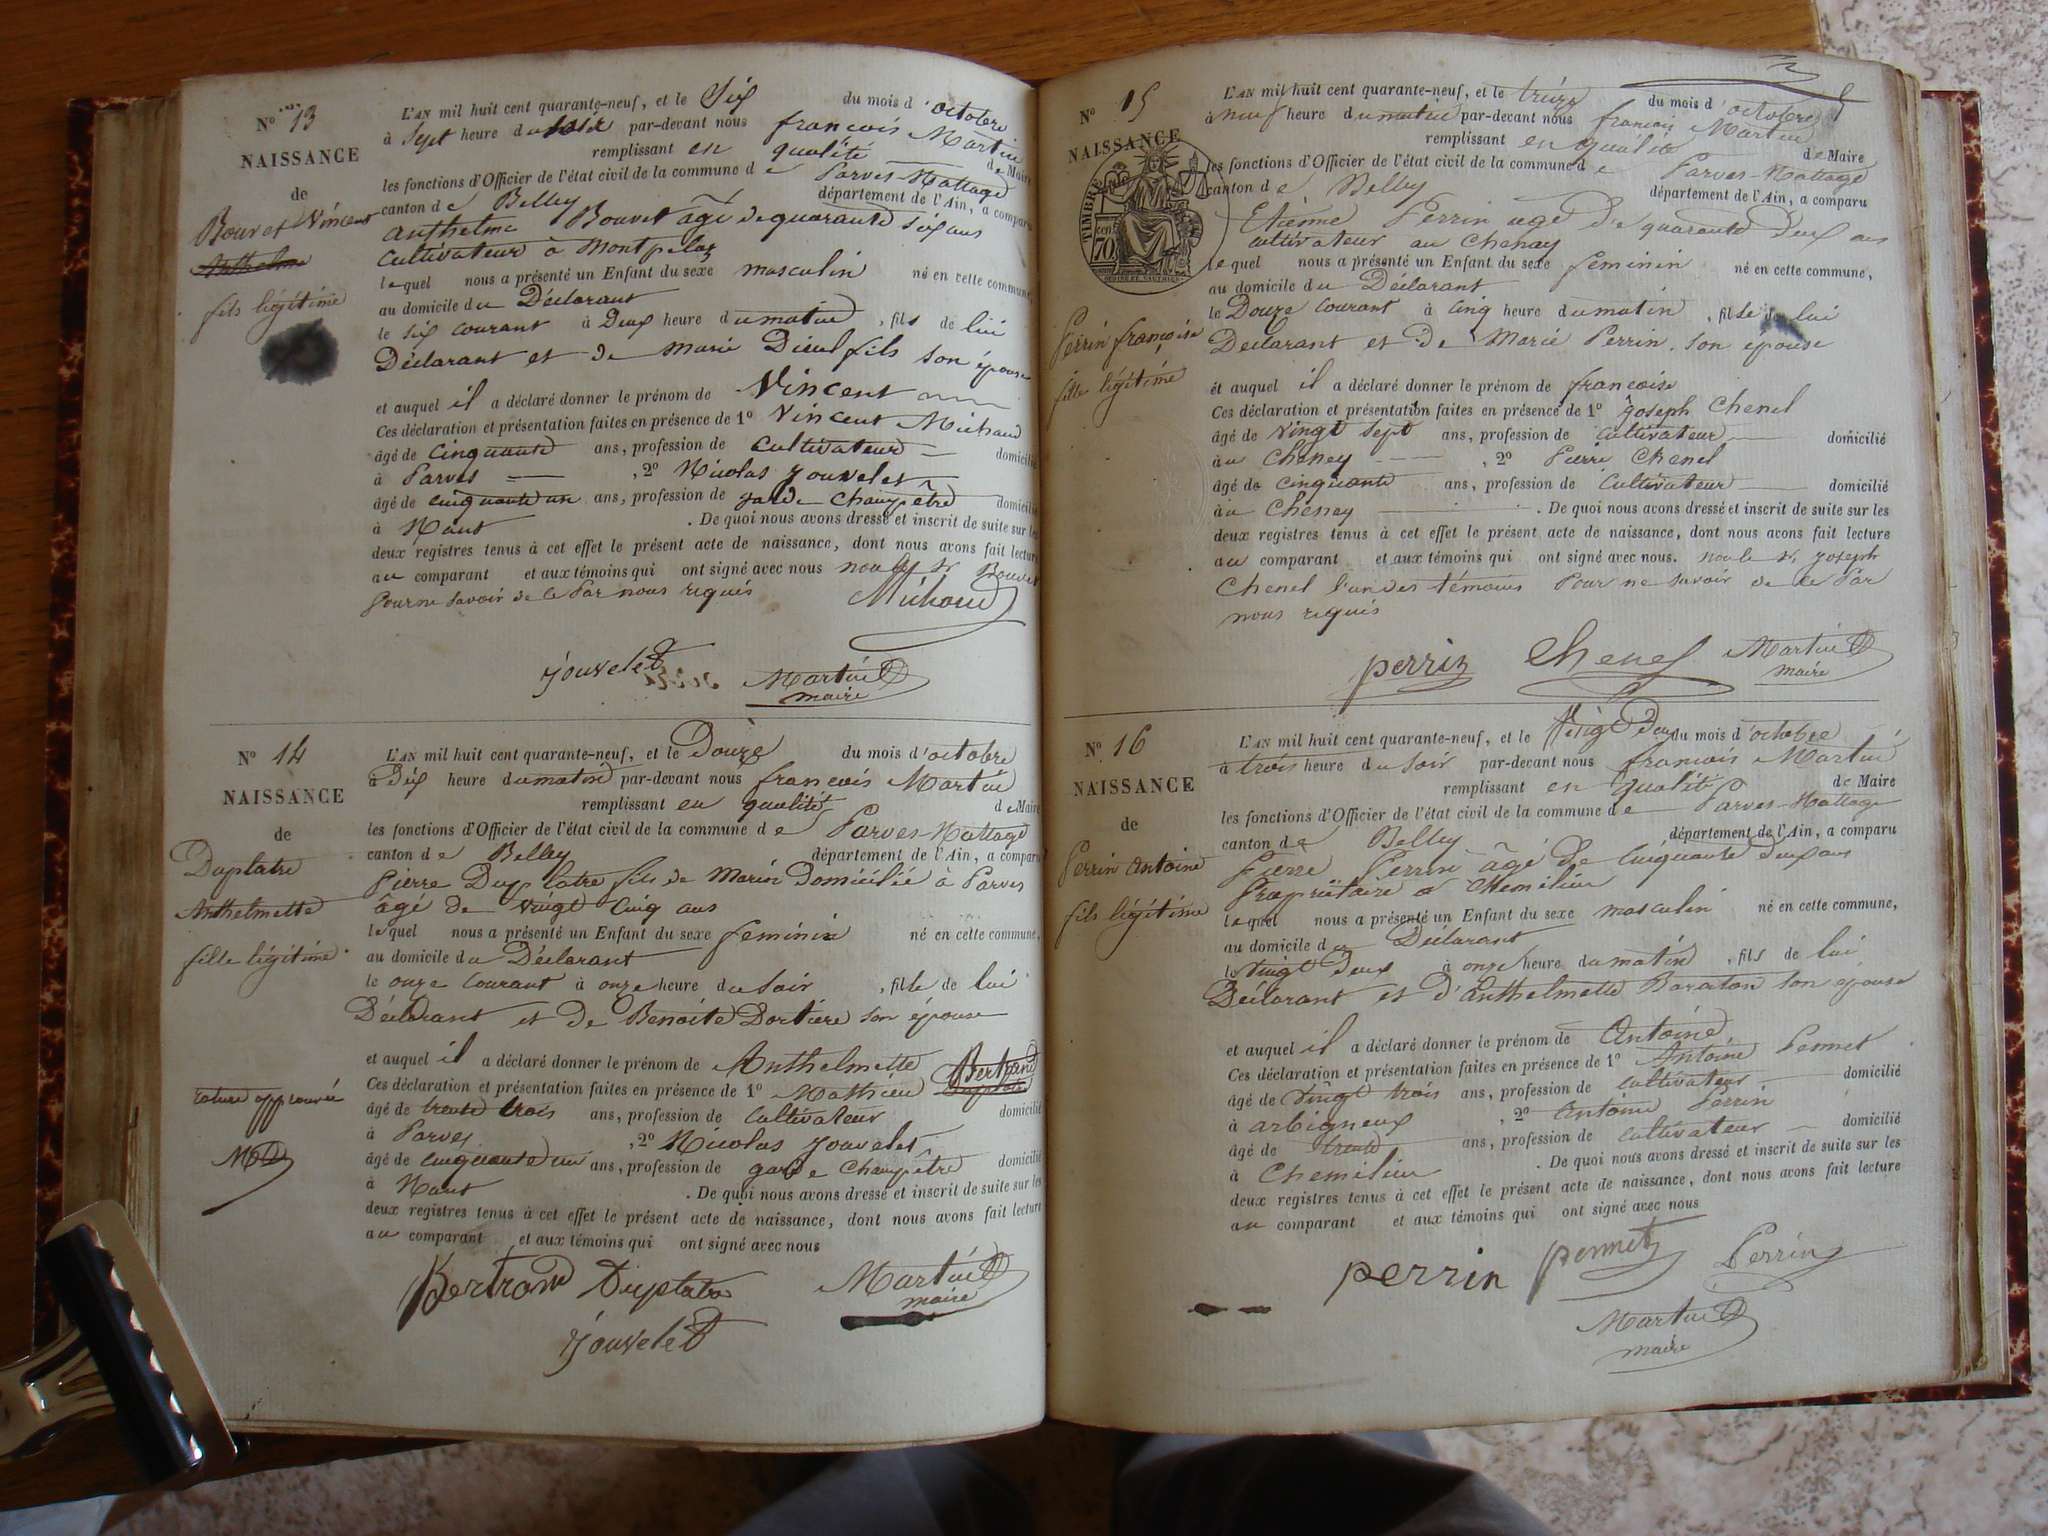 N° 13
NAISSANCE
de
Bouvet Vincent
Anthelme
fils légitime
L'AN mil huit cent quarante-neuf, et le Six du mois d'octobre
à Sept heure du soir par-devant nous françois Martin
remplissant en qualité de Maire
les fonctions d'Officier de l'état civil de la commune de Parves-Nattage
canton de Belley département de l'Ain, a comparu
Anthelme Bouvet âgé de quarante six ans
cultivateur à Montpelaz
lequel nous a présenté un Enfant du sexe masculin né en cette commune,
au domicile du Déclarant
le six courant à Deux heure du matin, fils de lui
Déclarant et de Marie Dieulfils son épouse
et auquel il a déclaré donner le prénom de Vincent
Ces déclaration et présentation faites en présence de 1° Vincent Michaud
âgé de cinquante ans, profession de cultivateur domicilié
à Parves , 2° Nicolas Jouvelet
âgé de cinquante un ans, profession de garde Champêtre domicilié
à Nant . De quoi nous avons dressé et inscrit de suite sur les
deux registres tenus à cet effet le présent acte de naissance, dont nous avons fait lecture
au comparant et aux témoins qui ont signé avec nous non le Sr Bouvet
pour ne savoir de ce par nous riquis
Michaud
Jouvelet Martin
maire
N° 14
NAISSANCE
de
Duplatre
Anthelmette
fille légitime
rature approuvée
L'AN mil huit cent quarante-neuf, et le Douze du mois d'octobre
à Dix heure du matin par-devant nous françois Martin
remplissant en qualité de Maire
les fonctions d'Officier de l'état civil de la commune de Parves-Nattage
canton de Belley département de l'Ain, a comparu
Pierre Duplatre fils de Marin Domicilié à Parves
âgé de vingt cinq ans
lequel nous a présenté un Enfant du sexe feminin né en cette commune,
au domicile du Déclarant
le onze courant à onze heure du soir , fille de lui
Déclarant et de Benoite Dortiere son épouse
et auquel il a déclaré donner le prénom de Anthelmette
Ces déclaration et présentation faites en présence de 1° Mathieu Bertrand Duplatre
âgé de trente trois ans, profession de cultivateur domicilié
à Parves , 2° Nicolas Jouvelet
âgé de cinquante un ans, profession de garde Champêtre domicilié
à Nant . De quoi nous avons dressé et inscrit de suite sur les
deux registres tenus à cet effet le présent acte de naissance, dont nous avons fait lecture
au comparant et aux témoins qui ont signé avec nous
Bertrand Duplatre Martin
maire
Jouvelet
N° 15
NAISSANCE
TIMBRE
70
Perrin françoise
fille légitime
L'AN mil huit cent quarante-neuf, et le treize du mois d'octobre
à neuf heure du matin par-devant nous françois Martin
remplissant en qualité de Maire
les fonctions d'Officier de l'état civil de la commune de Parves-Nattage
canton de Belley département de l'Ain, a comparu
Etienne Perrin agé de quarante Deux ans
cultivateur au Chenay
lequel nous a présenté un Enfant du sexe feminin né en cette commune,
au domicile du Déclarant
le Douze courant à cinq heure du matin , fille de lui
Declarant et de Marie Perrin. son épouse
et auquel il a déclaré donner le prénom de françoise
Ces déclaration et présentation faites en présence de 1° Joseph Chenel
âgé de vingt sept ans, profession de cultivateur domicilié
au Cheney , 2° Pierre Chenel
âgé de cinquante ans, profession de Cultivateur domicilié
au Cheney . De quoi nous avons dressé et inscrit de suite sur les
deux registres tenus à cet effet le présent acte de naissance, dont nous avons fait lecture
au comparant et aux témoins qui ont signé avec nous. non le Sr Joseph
Chenel l'un des témoins pour ne savoir de ce par
nous riquis
perrin Chenel Martin
maire
N° 16
NAISSANCE
de
Perrin Antoine
fils légitime
L'AN mil huit cent quarante-neuf, et le Vingt Deux du mois d'octobre
à trois heure du soir par-devant nous francois Martin
remplissant en qualité de Maire
les fonctions d'Officier de l'état civil de la commune de Parves-Nattage
canton de Belley département de l'Ain, a comparu
Pierre Perrin âgé de Cinquante deux ans
Propriétaire à Chemilieu
lequel nous a présenté un Enfant du sexe masculin né en cette commune,
au domicile du Déclarant
le vingt Deux à onze heure du matin , fils de lui
Déclarant et d'Anthelmette Baraton son épouse
et auquel il a déclaré donner le prénom de Antoine
Ces déclaration et présentation faites en présence de 1° Antoine Pennet
âgé de vingt trois ans, profession de cultivateur domicilié
à arbigneux , 2° Antoine Perrin
âgé de trente ans, profession de cultivateur domicilié
à Chemilieu . De quoi nous avons dressé et inscrit de suite sur les
deux registres tenus à cet effet le présent acte de naissance, dont nous avons fait lecture
au comparant et aux témoins qui ont signé avec nous
perrin pennet Perrin
Martin
maire